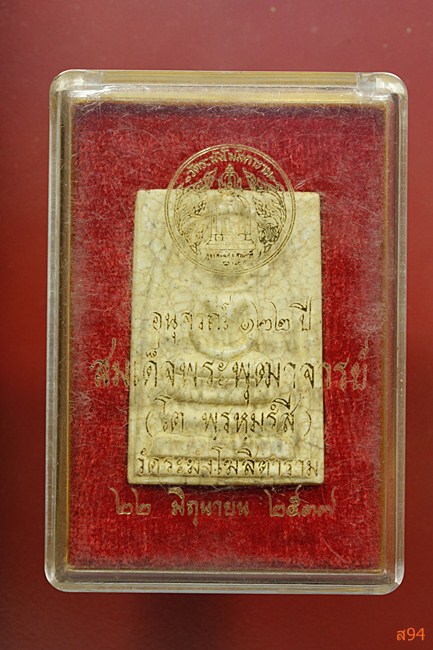 วัดระฆังโฆสิตาราม
อนุสรณ์ ๑๒๒ ปี
สมเด็จพระพุฒาจารย์
(โต พฺรหฺมรํสี)
วัดระฆังโฆสิตาราม
๒๒ มิถุนายน ๒๕๓๗
ส94